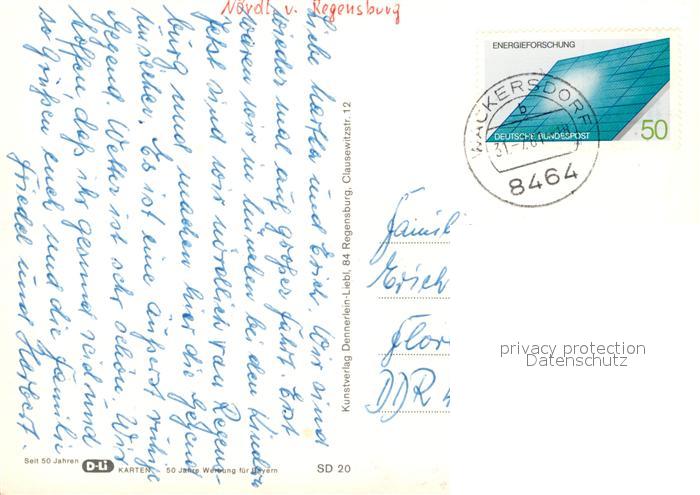 Nördl. v. Regensburg
Liebe Martha und Erich. Wir sind
wieder mal auf großer Fahrt. Erst
waren wir in München bei den Kindern
jetzt sind wir nördlich von Regens-
burg und machen hier die Gegend
unsicher. Es ist eine äußerst ruhige
Gegend. Wetter ist sehr schön. Wir
hoffen daß ihr gesund seid und
so grüßen euch und die Familie
Friedel und Herbert.
Kunstverlag Dennerlein-Liebl, 84 Regensburg, Clausewitzstr. 12
ENERGIEFORSCHUNG
DEUTSCHE BUNDESPOST
50
WACKERSDORF
b
8464
Erich
Flor
DDR
privacy protection
Datenschutz
Seit 50 Jahren D-Li KARTEN 50 Jahre Werbung für Bayern
SD 20